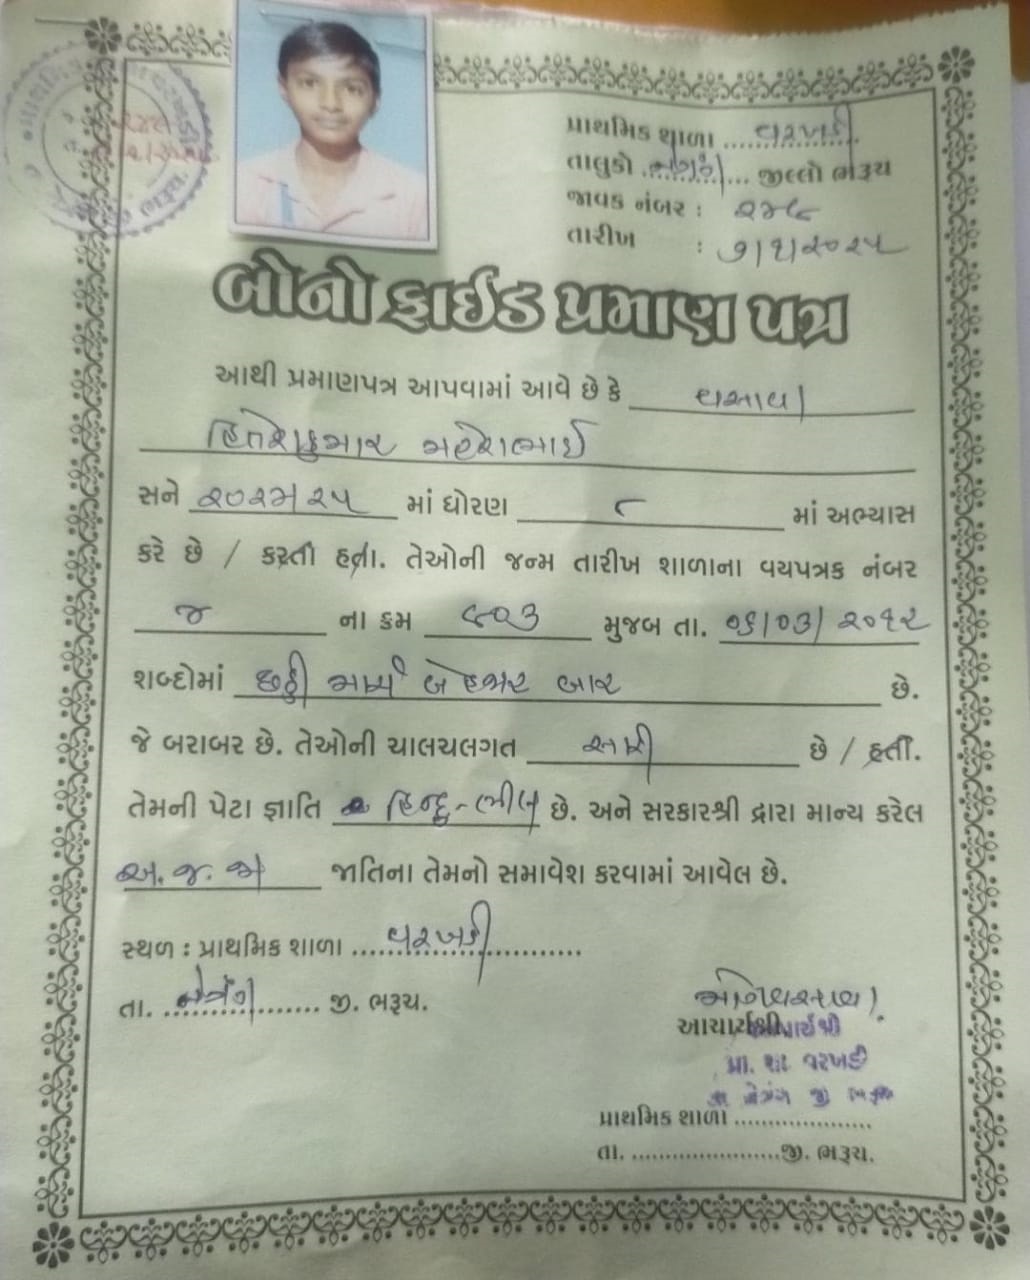 પ્રાથમિક શાળા વરખડી
તાલુકો નેત્રંગ જીલ્લો ભરૂચ
જાવક નંબર : ૨૪૮
તારીખ : ૭/૧/૨૦૨૫
બોનોફાઈડ પ્રમાણ પત્ર
આથી પ્રમાણપત્ર આપવામાં આવે છે કે વસાવા
હિતેશકુમાર મહેશભાઈ
સને ૨૦૨૪/૨૫ માં ધોરણ ૮ માં અભ્યાસ
કરે છે / કરતા હતા. તેઓની જન્મ તારીખ શાળાના વયપત્રક નંબર
૪ ના ક્રમ ૯૦૩ મુજબ તા. ૦૬/૦૩/૨૦૧૨
શબ્દોમાં છઠ્ઠી માર્ચ બે હજાર બાર છે.
જે બરાબર છે. તેઓની ચાલચલગત સારી છે / હતી.
તેમની પેટા જ્ઞાતિ હિન્દુ-ભીલ છે. અને સરકારશ્રી દ્રારા માન્ય કરેલ
અ.જ.જા જાતિના તેમનો સમાવેશ કરવામાં આવેલ છે.
સ્થળ : પ્રાથમિક શાળા વરખડી
તા. નેત્રંગ જી. ભરૂચ.
આચાર્યશ્રી
આચાર્યશ્રી
પ્રા. શા. વરખડી
તા. નેત્રંગ જી. ભરૂચ
પ્રાથમિક શાળા ....................
તા. ......................જી. ભરૂચ.